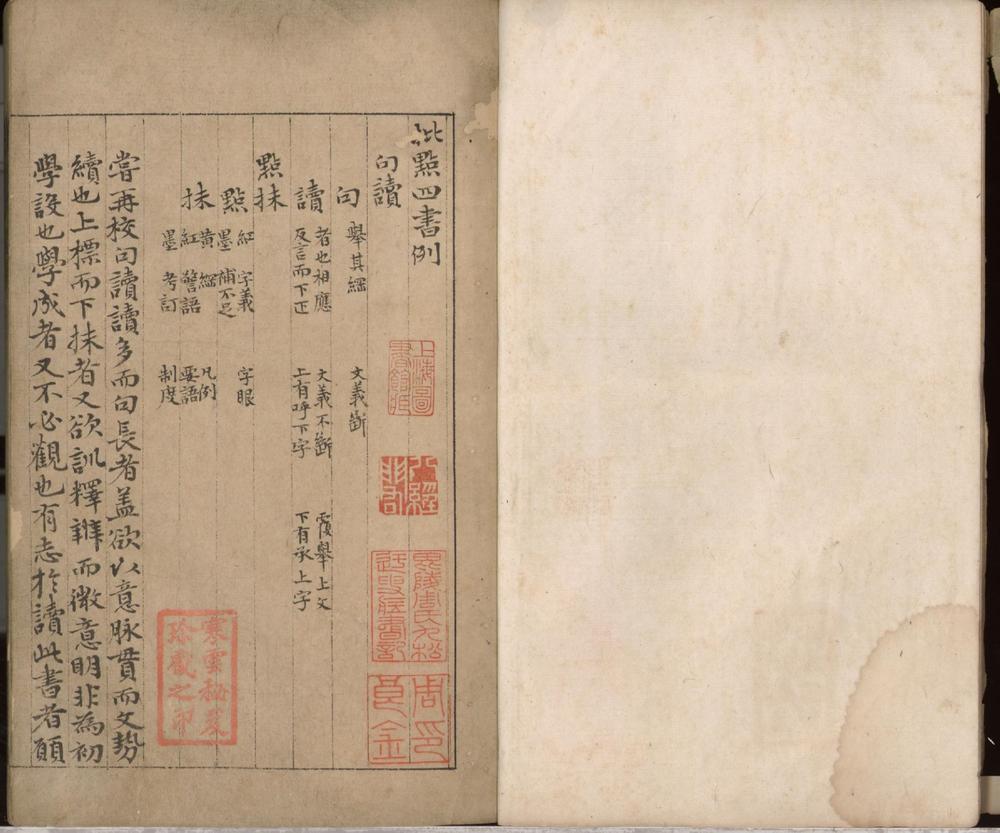 批點四書例
句讀
句 舉其綱 文義斷
讀 者也相應 文義不斷 覆舉上文
反言而下正 上有呼下字 下有承上字
點抹
點 紅 字義 字眼
墨 補不足
抹 黃 綱 凡例
紅 警語 要語
墨 考訂 制度
嘗再校句讀讀多而句長者蓋欲以意脉貫而文勢
續也上標而下抹者又欲訓釋辨而微意明非為初
學設也學成者又不必觀也有志於讀此書者願
上海圖書館藏
毘陵周氏九松迂叟藏書記
周印良金
寒雲秘笈珍藏之印